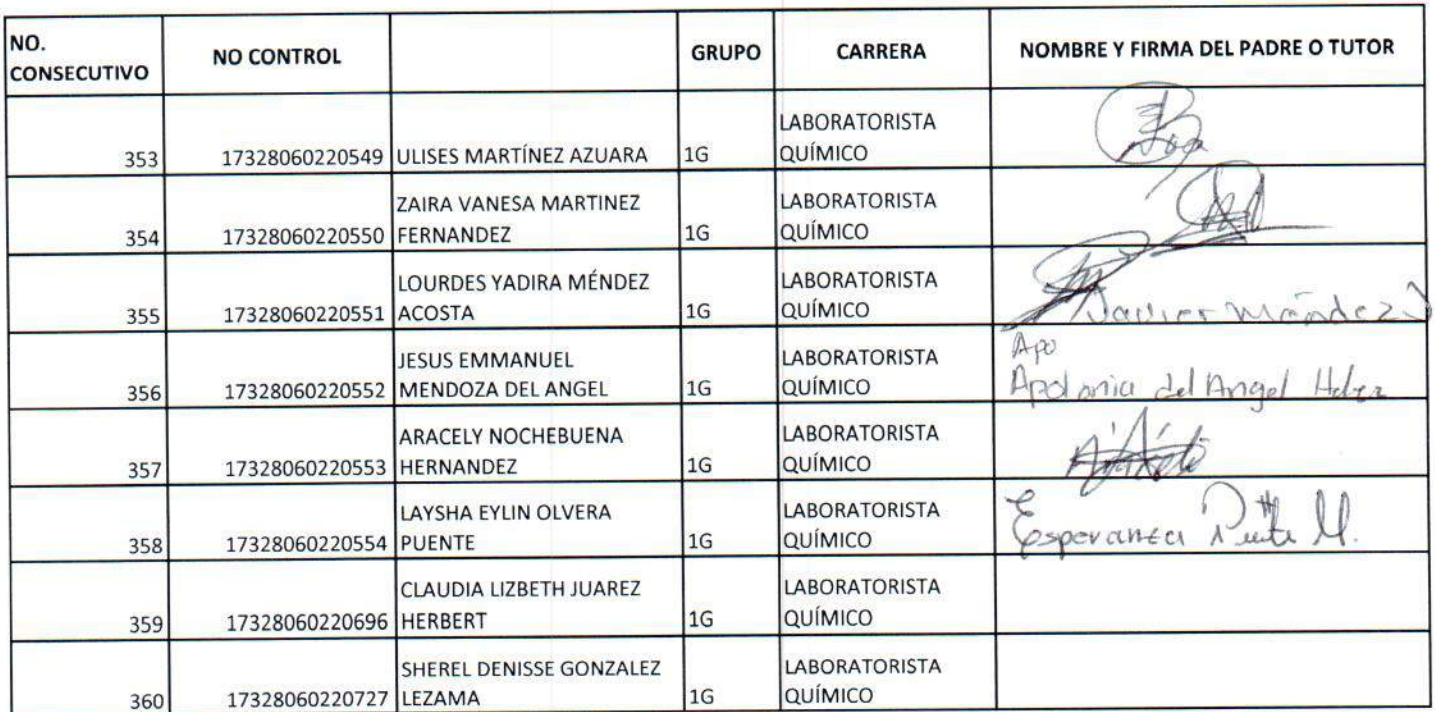 NO. CONSECUTIVO NO CONTROL GRUPO CARRERA NOMBRE Y FIRMA DEL PADRE O TUTOR
353 17328060220549 ULISES MARTÍNEZ AZUARA 1G LABORATORISTA QUÍMICO
354 17328060220550 ZAIRA VANESA MARTINEZ FERNANDEZ 1G LABORATORISTA QUÍMICO
355 17328060220551 LOURDES YADIRA MÉNDEZ ACOSTA 1G LABORATORISTA QUÍMICO Javier Méndez J
356 17328060220552 JESUS EMMANUEL MENDOZA DEL ANGEL 1G LABORATORISTA QUÍMICO Apo
Apolonia del Angel Hdez
357 17328060220553 ARACELY NOCHEBUENA HERNANDEZ 1G LABORATORISTA QUÍMICO
358 17328060220554 LAYSHA EYLIN OLVERA PUENTE 1G LABORATORISTA QUÍMICO Esperanza Puente M.
359 17328060220696 CLAUDIA LIZBETH JUAREZ HERBERT 1G LABORATORISTA QUÍMICO
360 17328060220727 SHEREL DENISSE GONZALEZ LEZAMA 1G LABORATORISTA QUÍMICO